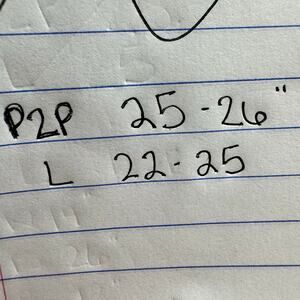 P2P 25 - 26"
L 22 - 25